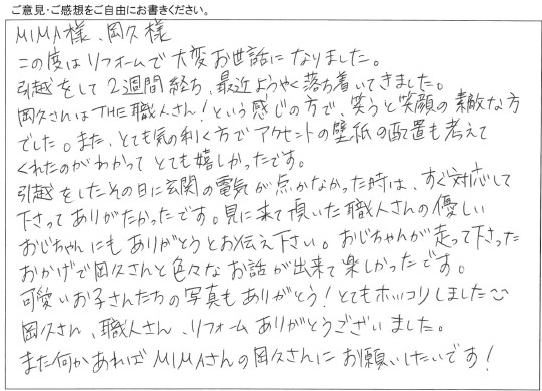 ご意見・ご感想をご自由にお書きください。
MIMA様、岡久様
この度はリフォームで大変お世話になりました。
引越をして2週間経ち、最近ようやく落ち着いてきました。
岡久さんはTHE職人さん!という感じの方で、笑うと笑顔の素敵な方
でした。また、とても気の利く方でアクセントの壁紙の配置も考えて
くれたのがわかってとても嬉しかったです。
引越をしたその日に玄関の電気が点かなかった時は、すぐ対応して
下さってありがたかったです。見に来て頂いた職人さんの優しい
おじちゃんにもありがとうとお伝え下さい。おじちゃんが走って下さった
おかげで岡久さんと色々なお話が出来て楽しかったです。
可愛いお子さんたちの写真もありがとう!とてもホッコリしました
岡久さん、職人さん、リフォームありがとうございました。
また何かあればMIMAさんの岡久さんにお願いしたいです!